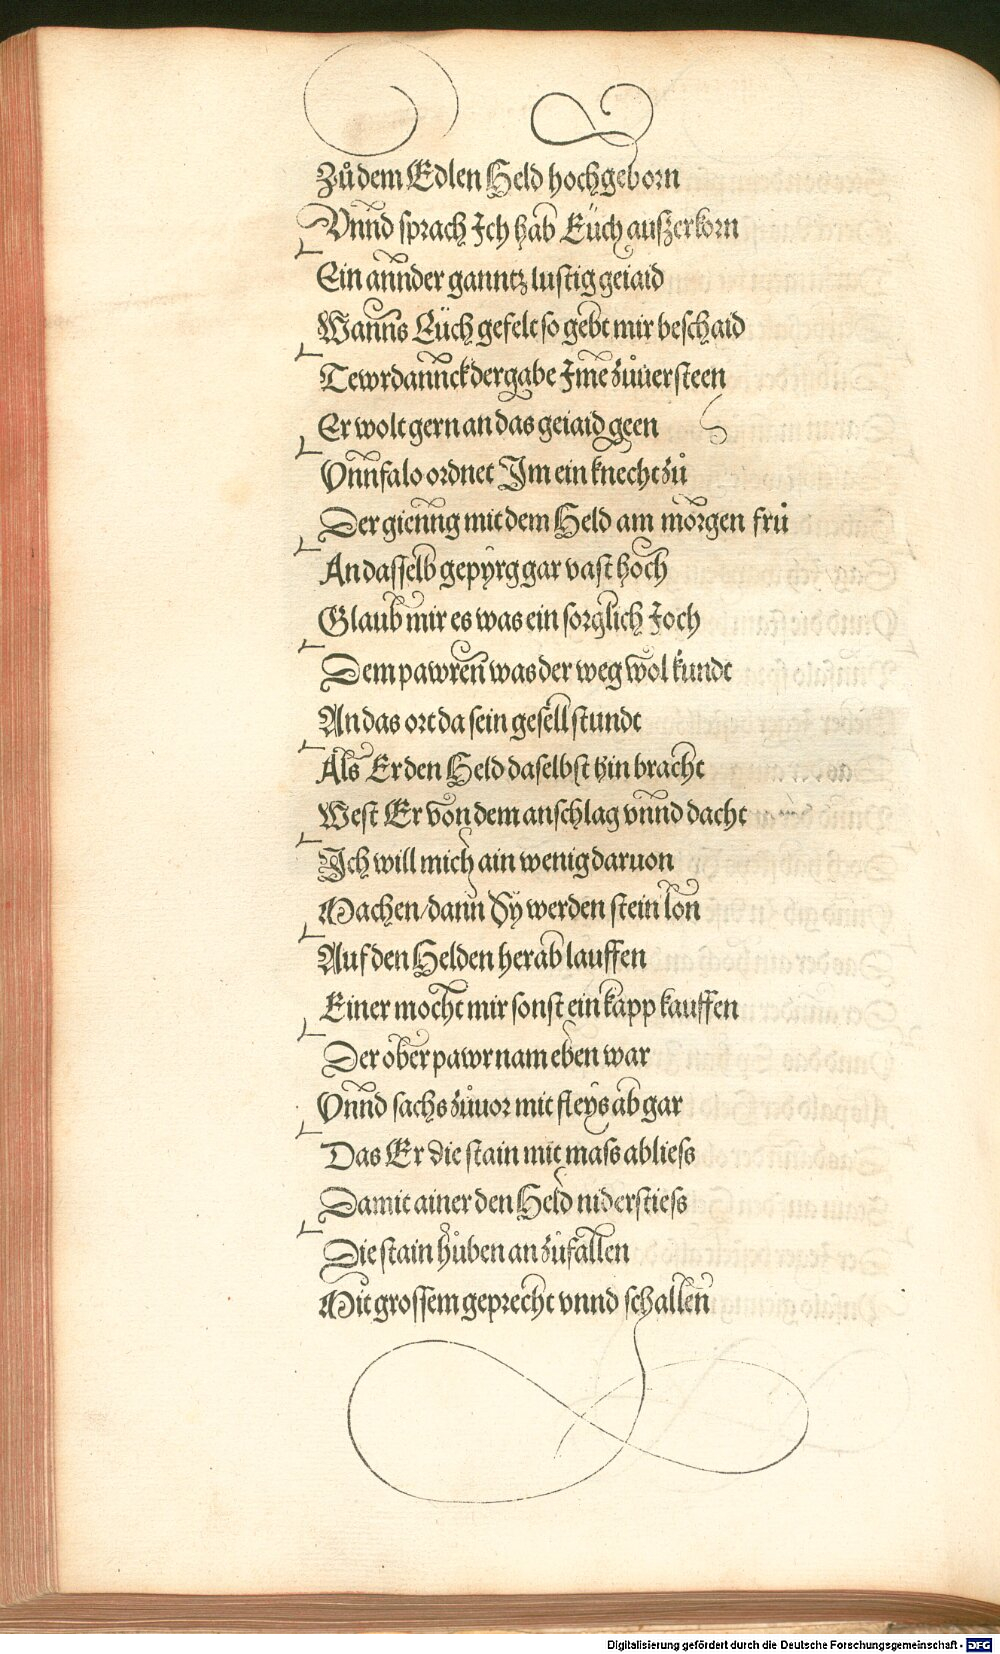 Zů dem Edlen Held hochgeborn
Vnnd sprach Ich hab Euch auszerkorn
Ein annder ganntz lustig geiaid
Wanns Eüch gefelt so gebt mir beschaid
Tewrdannck der gabe Ime zůuersteen
Er wolt gern an das geiaid geen
Vnnfalo ordnet Im ein knecht zů
Der gienng mit dem Held am morgen frü
An dasselb gepÿrg gar vast hoch
Glaub mir es was ein sorglich Joch
Dem pawren was der weg wol kundt
An das ort da sein gesell stundt
Als Er den Held daselbst hin bracht
West Er von dem anschlag vnnd dacht
Ich will mich ain wenig daruon
Machen/dann Sy werden stein lon
Auf den Helden herab lauffen
Einer mocht mir sonst ein kapp kauffen
Der ober pawr nam eben war
Vnnd sachs zůuor mit fleÿs ab gar
Das Er die stain mit mass abliess
Damit ainer den Held niderstiess
Die stain hůben an zůfallen
Mit grossem geprecht vnnd schallen
Digitalisierung gefördert durch die Deutsche Forschungsgemeinschaft - DFG